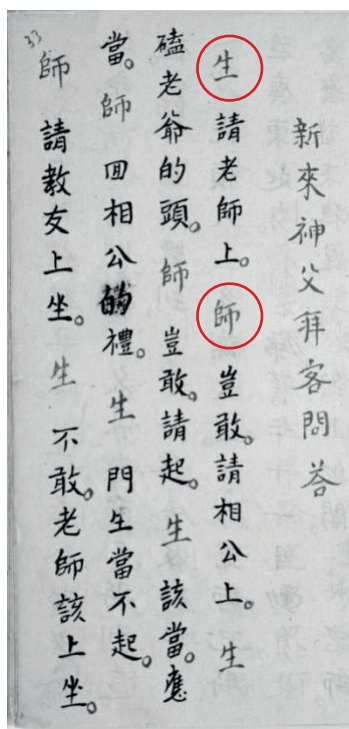 新來神父拜客問答
生 請老師上。師 豈敢。請相公上。生
磕老爺的頭。師 豈敢。請起。生 該當。應
當。師 回相公的禮。生 門生當不起。
師 請教友上坐。生 不敢。老師該上坐。
33